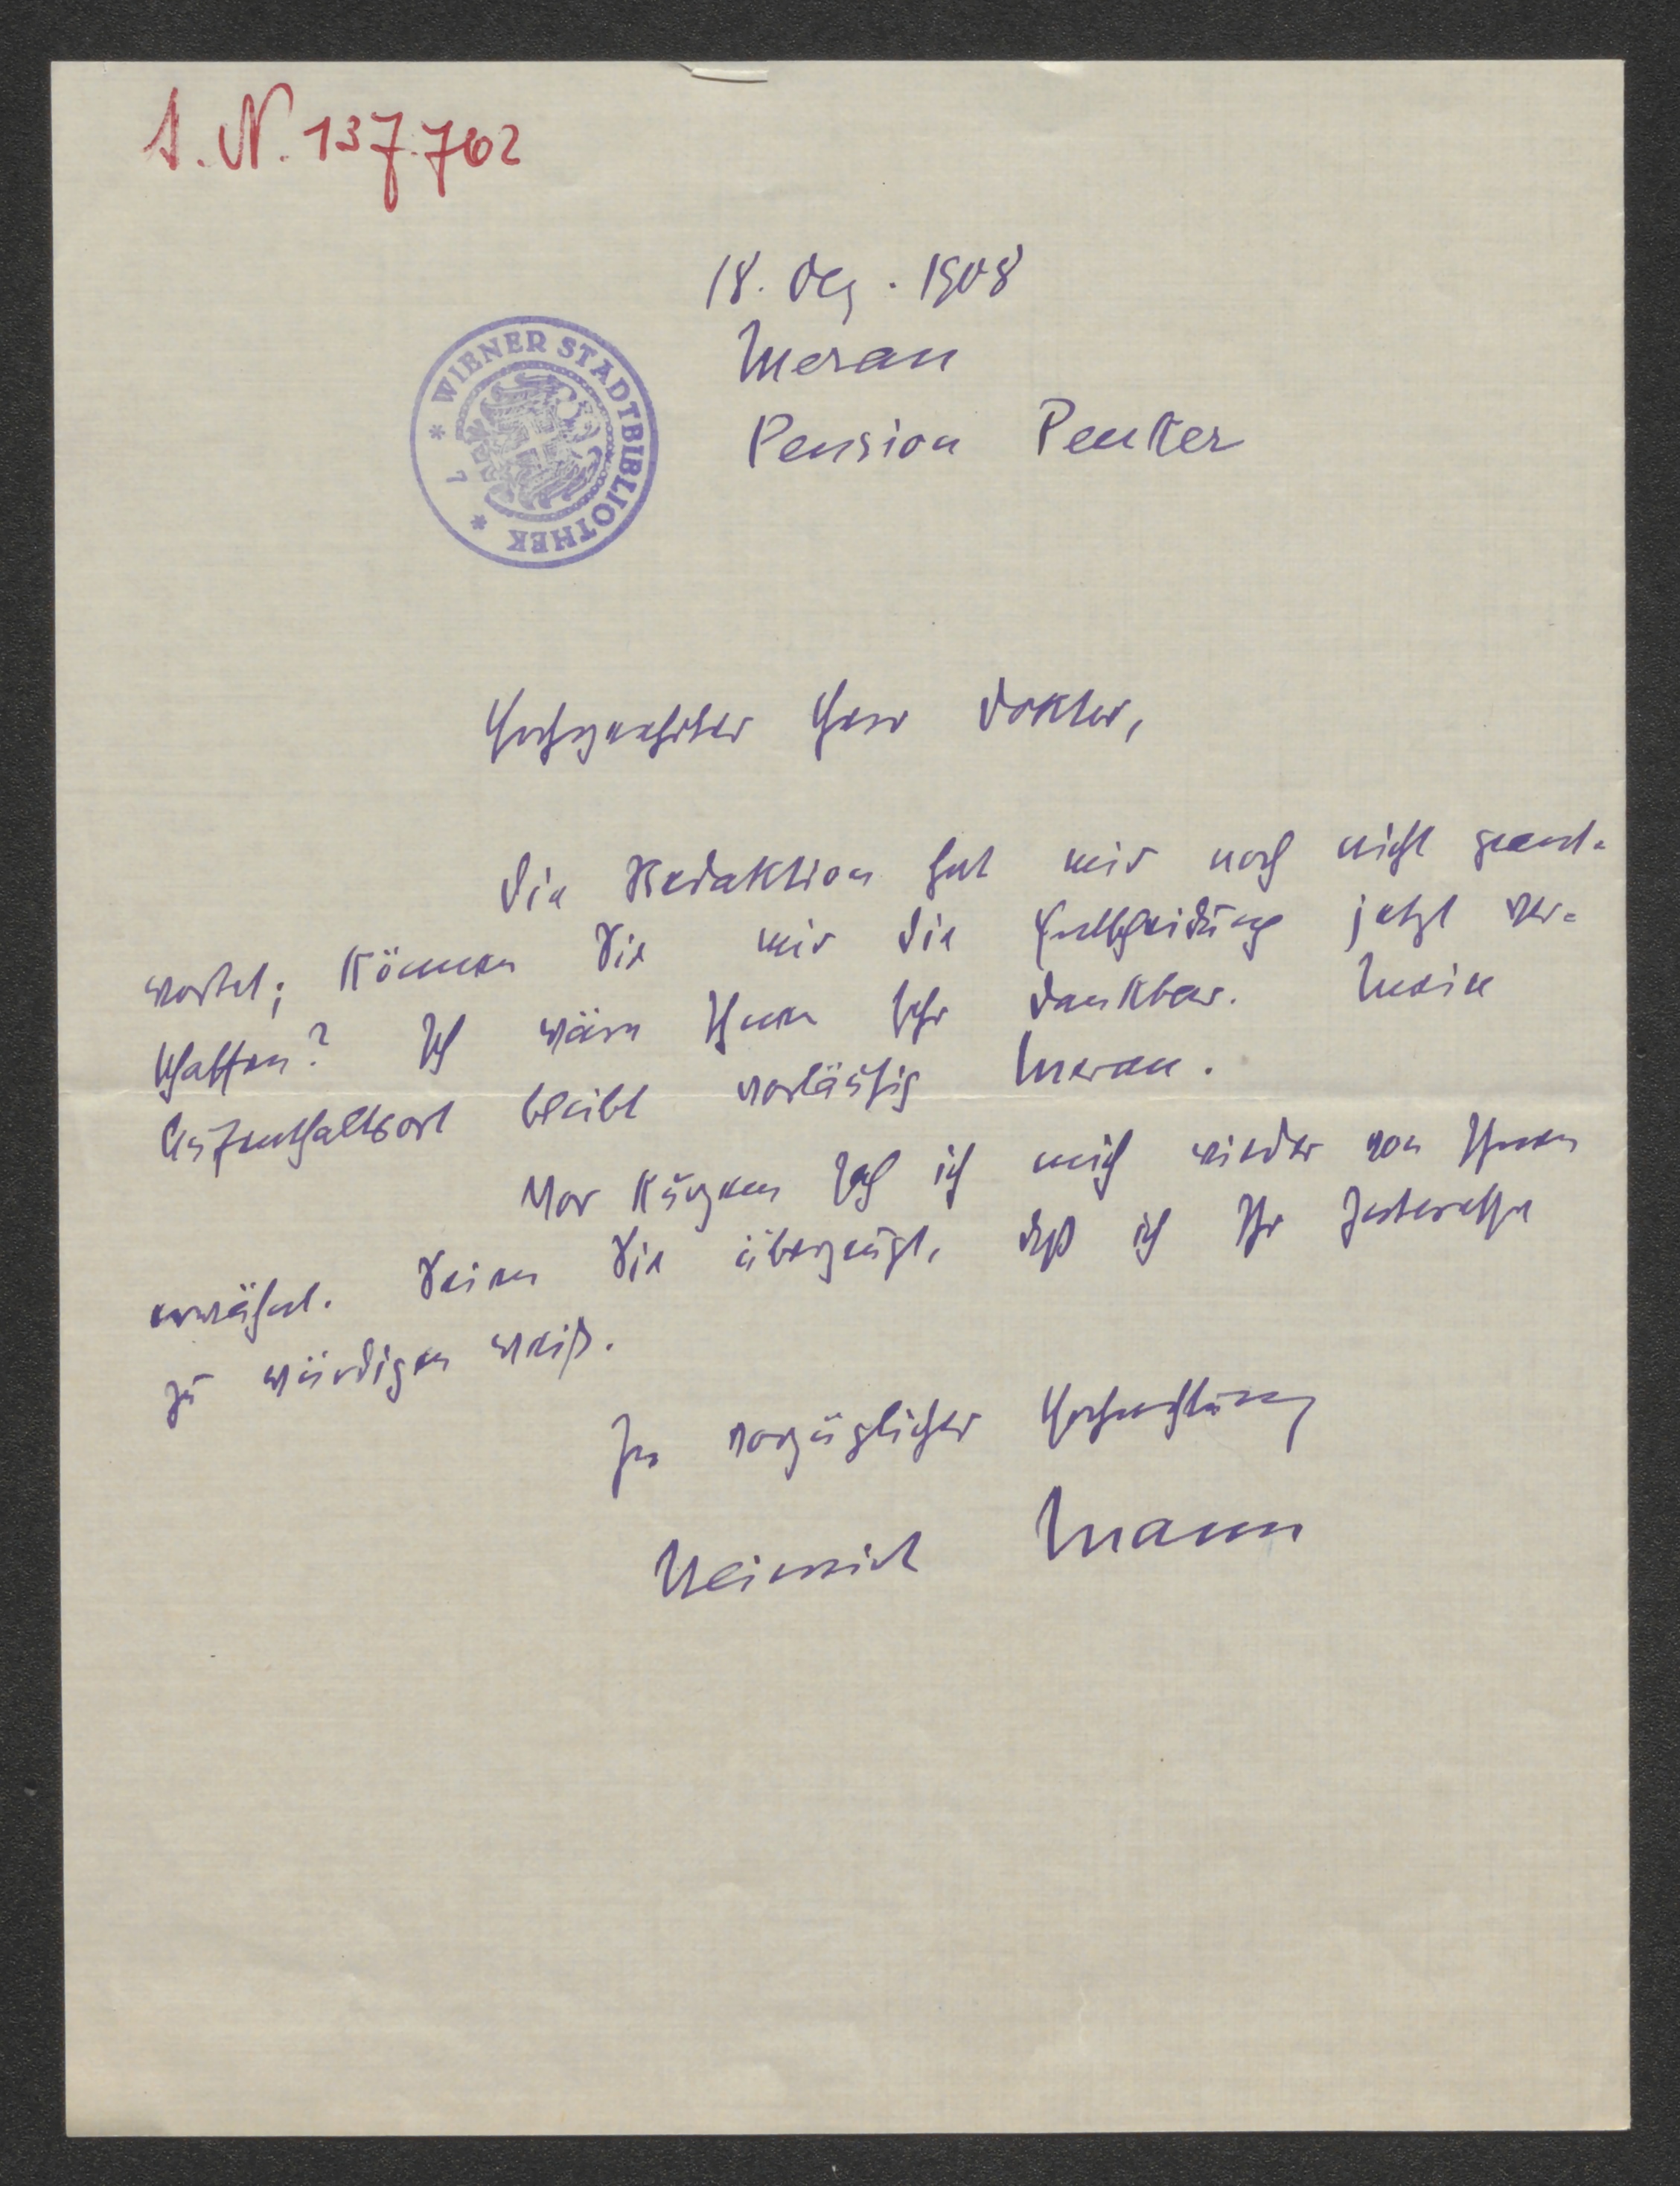 I. N. 137.762
18. Dez. 1908
Meran
Pension Penker
WIENER STADTBIBLIOTHEK
7
Hochgeehrter Herr Doktor,
die Redaktion hat mir noch nicht geant-
wortet; können Sie mir die Entscheidung jetzt ver-
schaffen? Ich wäre Ihnen sehr dankbar. Mein
Aufenthaltsort bleibt vorläufig Meran.
Vor Kurzem sah ich mich wieder von Ihnen
erwähnt. Seien Sie überzeugt, daß ich Ihr Interesse
zu würdigen weiß.
In vorzüglicher Hochachtung
Heinrich Mann